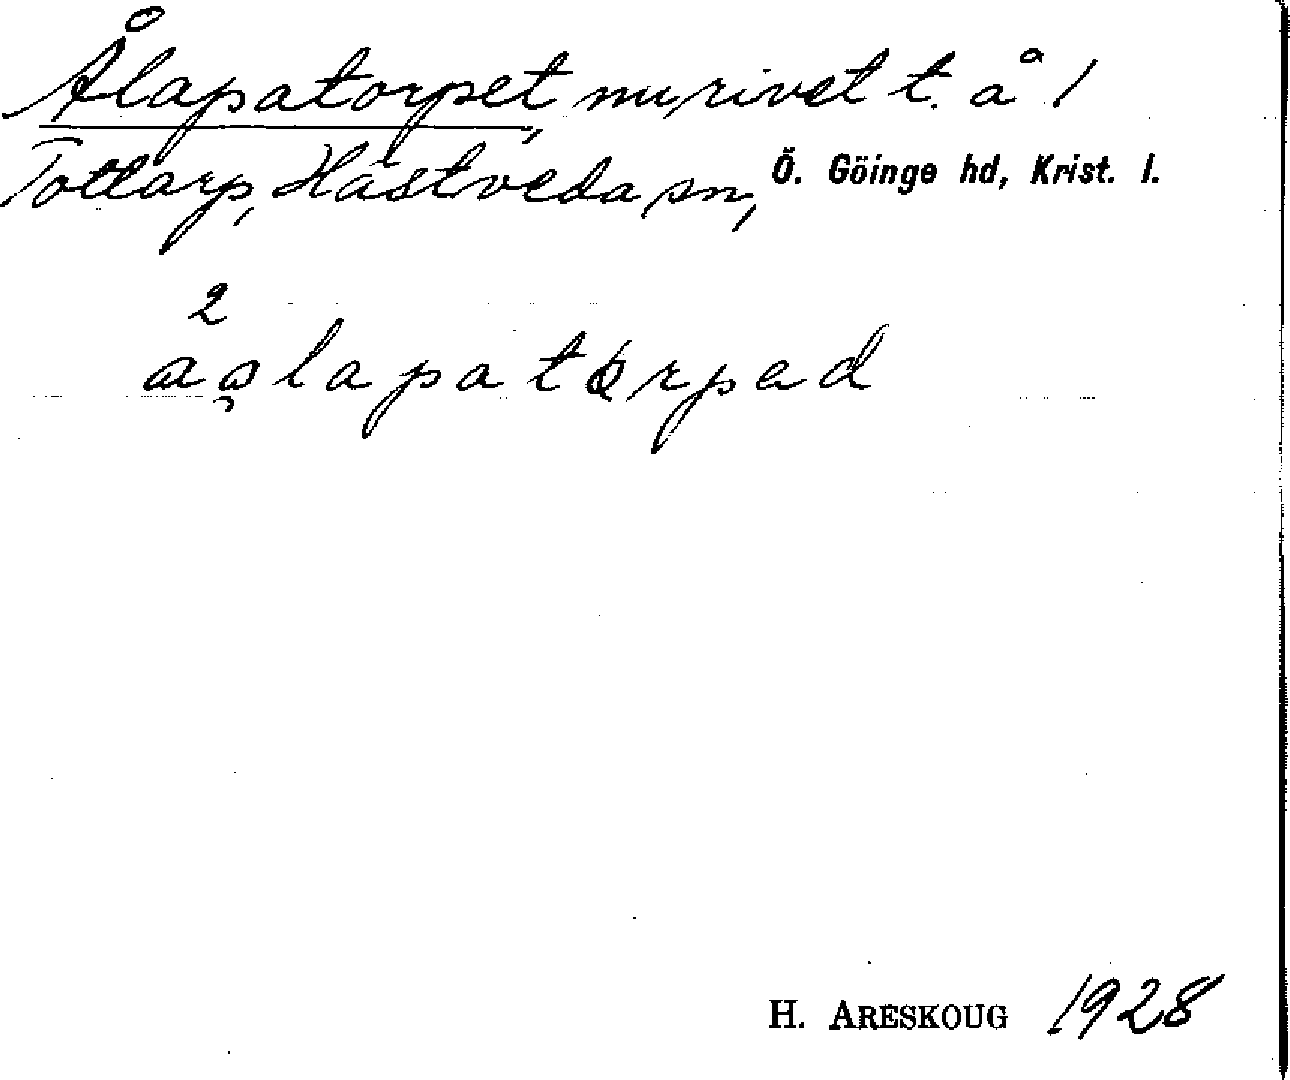 Ålapatorpet, nu rivet t. å 1
Tottarp, Hästveda sn, Ö. Göinge hd, Krist. l.
2
aǫlapatorpad
H. ARESKOUG 1928